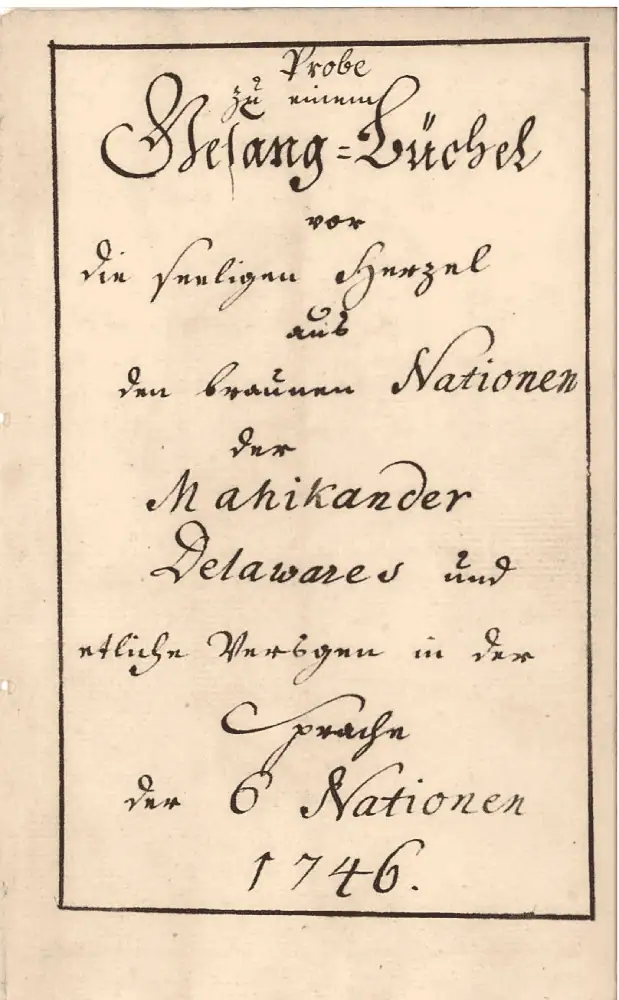 Probe
zu einem
Gesang=Büchel
vor
die seeligen Herzel
aus
den braunen Nationen
der
Mahikander
Delawares und
etliche Versgen in der
Sprache
der 6 Nationen
1746.